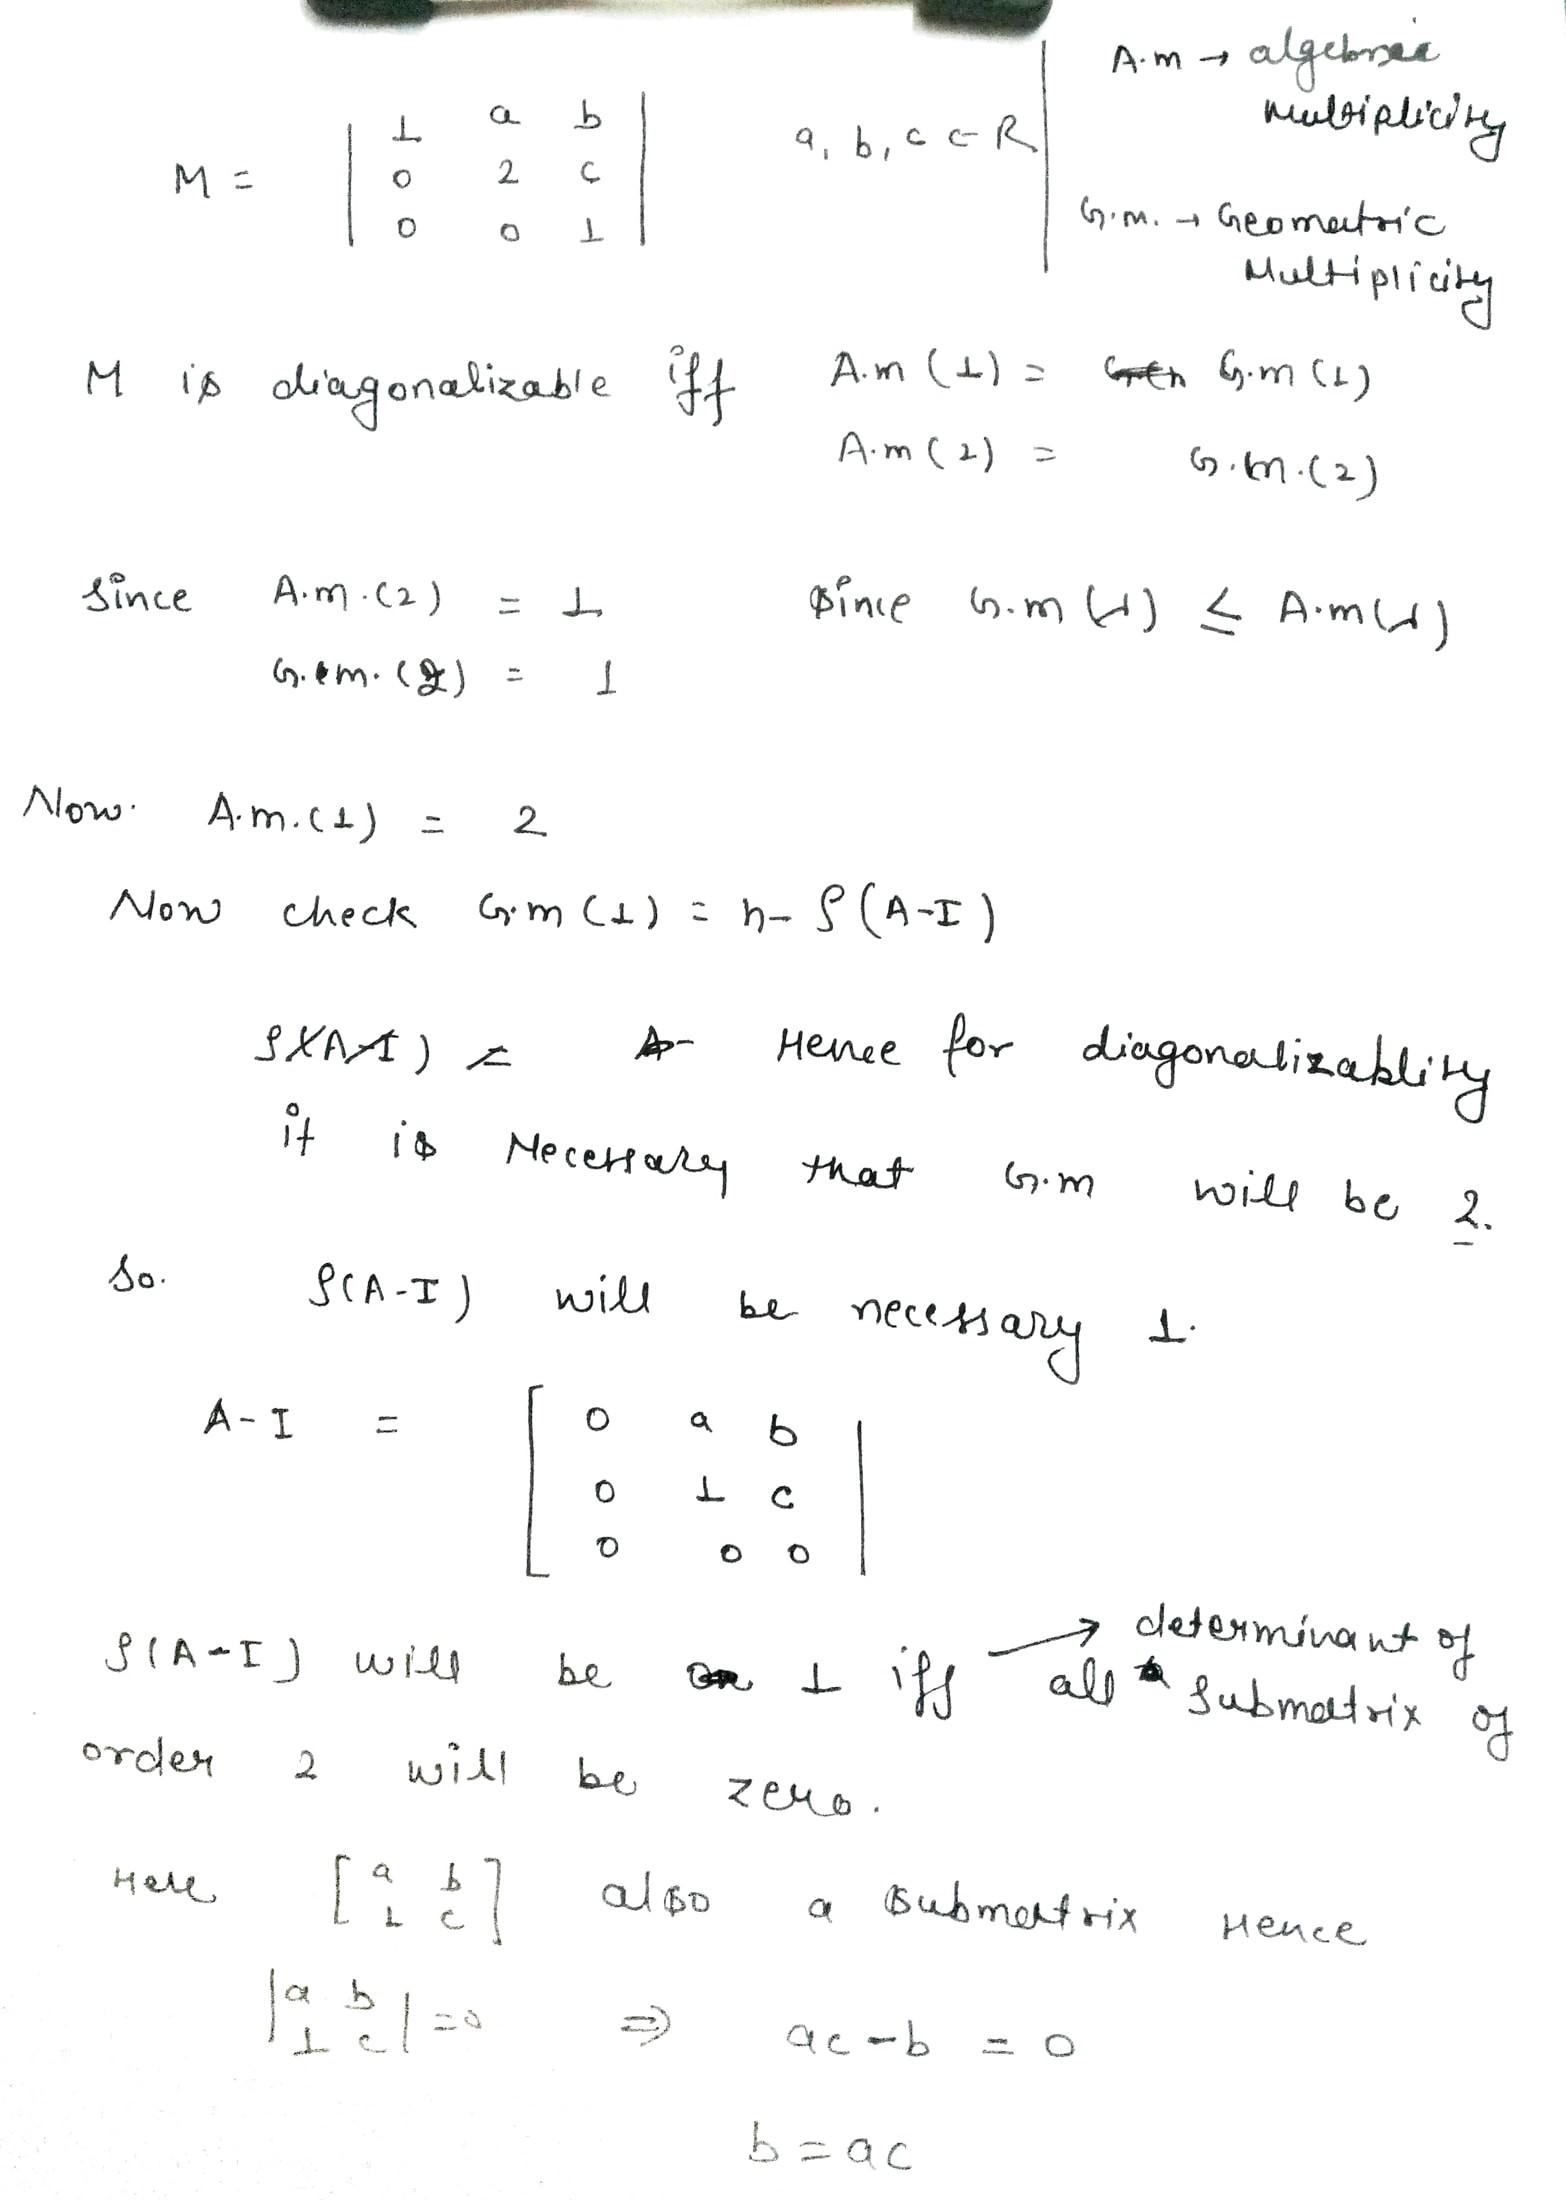 M = | 1 a b |
| 0 2 c |
| 0 0 1 |
a, b, c ∈ R
A.m → algebraic
multiplicity
G.m. → Geometric
Multiplicity
M is diagonalizable iff A.m (1) = G.m (1)
A.m (2) = G.m.(2)
Since A.m.(2) = 1 Since G.m (λ) ≤ A.m (λ)
G.m. (2) = 1
Now. A.m.(1) = 2
Now check G.m (1) = n - ρ(A-I)
Hence for diagonalizablity
it is Necessary that G.m will be 2.
So. ρ(A-I) will be necessary 1.
A-I = [ 0 a b ]
0 1 c
0 0 0
ρ(A-I) will be 1 iff → determinant of
all submatrix of
order 2 will be zero.
Here [ a b ] also a submatrix Hence
1 c
| a b | = 0 ⇒ ac - b = 0
1 c
b = ac